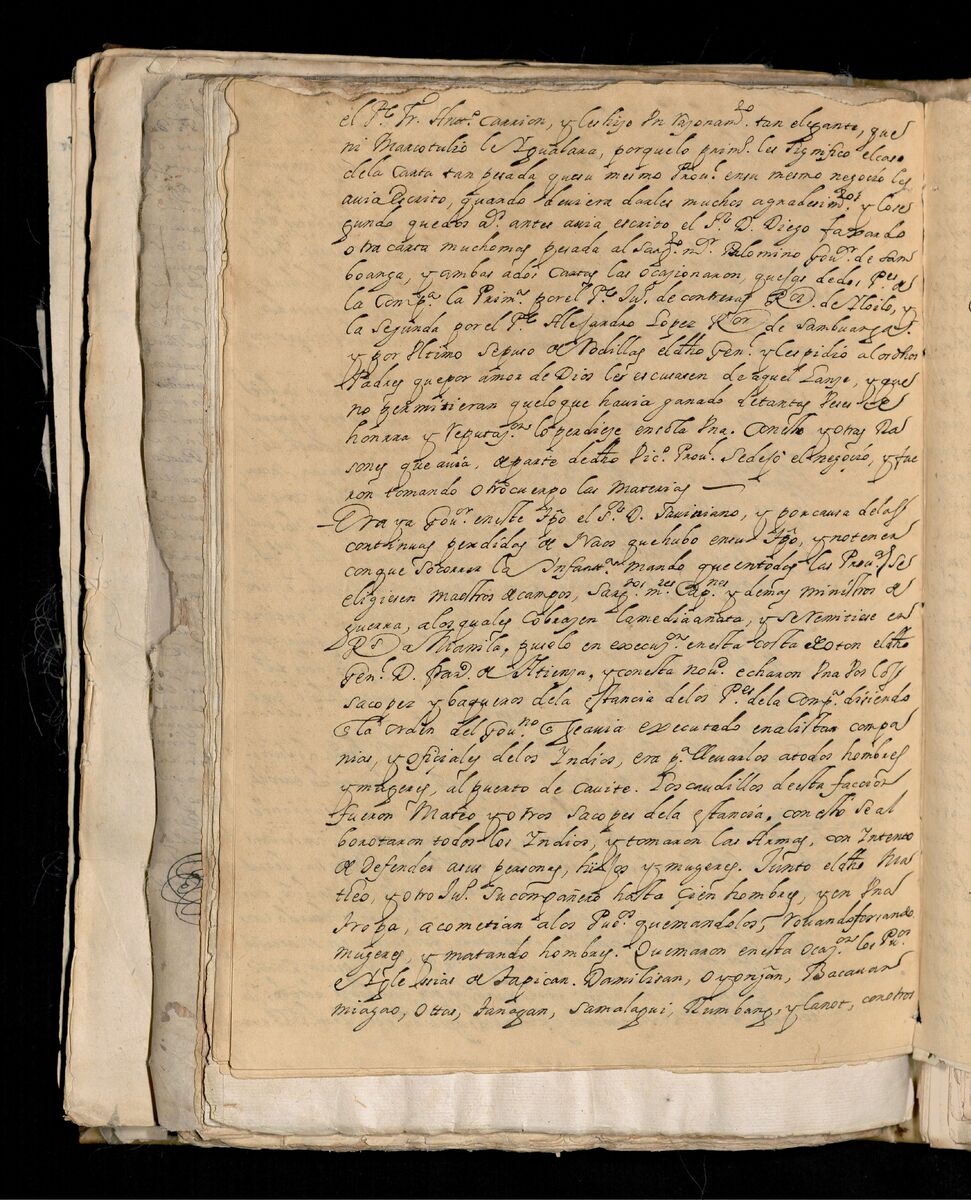 el Pᵉ Fr. Antᵒ. Carrion, y les hizo Vn rasonamᵗᵒ. tan elegante, que
ni Marcotulio le Ygualara, porque lo primᵒ. les significo el caso
dela Carta tan pesada que su mesmo Prouˡ. en su mesmo negocio les
auia escrito, quando deuiera darles muchos agradesimᵗᵒˢ. y lo se
gundo que dos aˢ. antes auia escrito el Sʳ D. Diego faxardo
otra carta mucho mas pesada al Sargᵗᵒ. mʳ. Palomino Gouʳ. de sam
boanga, y ambas a dos Cartas las ocasionaron, quejas de dos Pᵉˢ de
la Compᵃ. la Primᵃ. por el Pᵉ Juᵒ. de contreras Rᵒʳ. de Yloilo, y
la segunda por el Pᵉ Alejandro Lopez Rᵒʳ de Sambuanga.
y por Vltimo se puso de Rodillas el dho Genˡ. y les pidio a los dhos
Padres que por amor de Dios les escusasen de aquel lanze, y que
no permitieran que lo que hauia ganado de tantas Veses de
honrra y reputasᵒⁿ. lo perdiese en esta Vna. Con esto y otras Ra
sones que auia, de parte de dho Vicᵒ. Prouˡ. se dejó el negocio, y fue
ron tomando otro cuerpo las Materias —
Era ya Gouᵒʳ. en este tpō el Sʳ D. Sauiniano, y por causa de las
continuas perdidas de Naos que hubo en su tpō, y no tener
con que socorrer la Infantʳᵃ Mando que en todas las Prouᵃˢ se
eligiesen maestros de campos, Sargᵗᵒˢ. mʳᵉˢ. Capⁿᵉˢ. y demas ministros de
guerra, a los quales cobrasen la media anata, y se remitiese en
Rˢ a Manila, pusolo en execuᵒⁿ. en esta costa de Oton el dho
Genˡ. D. Franᶜᵒ. de Atienza, y con esta nouᵃ. echaron Vna Vos los
sacopes y baqueros dela estancia de los Pᵉˢ. dela Compᵃ. disiendo
q̃ la orden del Gouⁿᵒ. q̃ se auia executado en alistar compa
nias, y oficiales de los Indios, era pᵃ lleuarlos a todos hombres
y mugeres, al puerto de Cauite. Los caudillos de esta faccion
fueron Mateo y otros sacopes dela estancia, con esto se al
borotaron todos los Indios, y tomaron las Armas, con Intento
de defender a sus personas, hijos y mugeres. Junto el dho Ma
theo, y otro Juᵒ. su compañero hasta Çien hombres, y en Vna
tropa, acometian a los Pueᵒˢ quemandolos, rouando forsando
mugeres, y matando hombres. Quemaron en esta Ocasᵒⁿ los Puᵒˢ.
e Yglessias de Tapican. Damilisan, Oyonjan, Bacauan
miagao, Ottas, Tanagan, Samalagui, Rumbang, y lanot, con otros